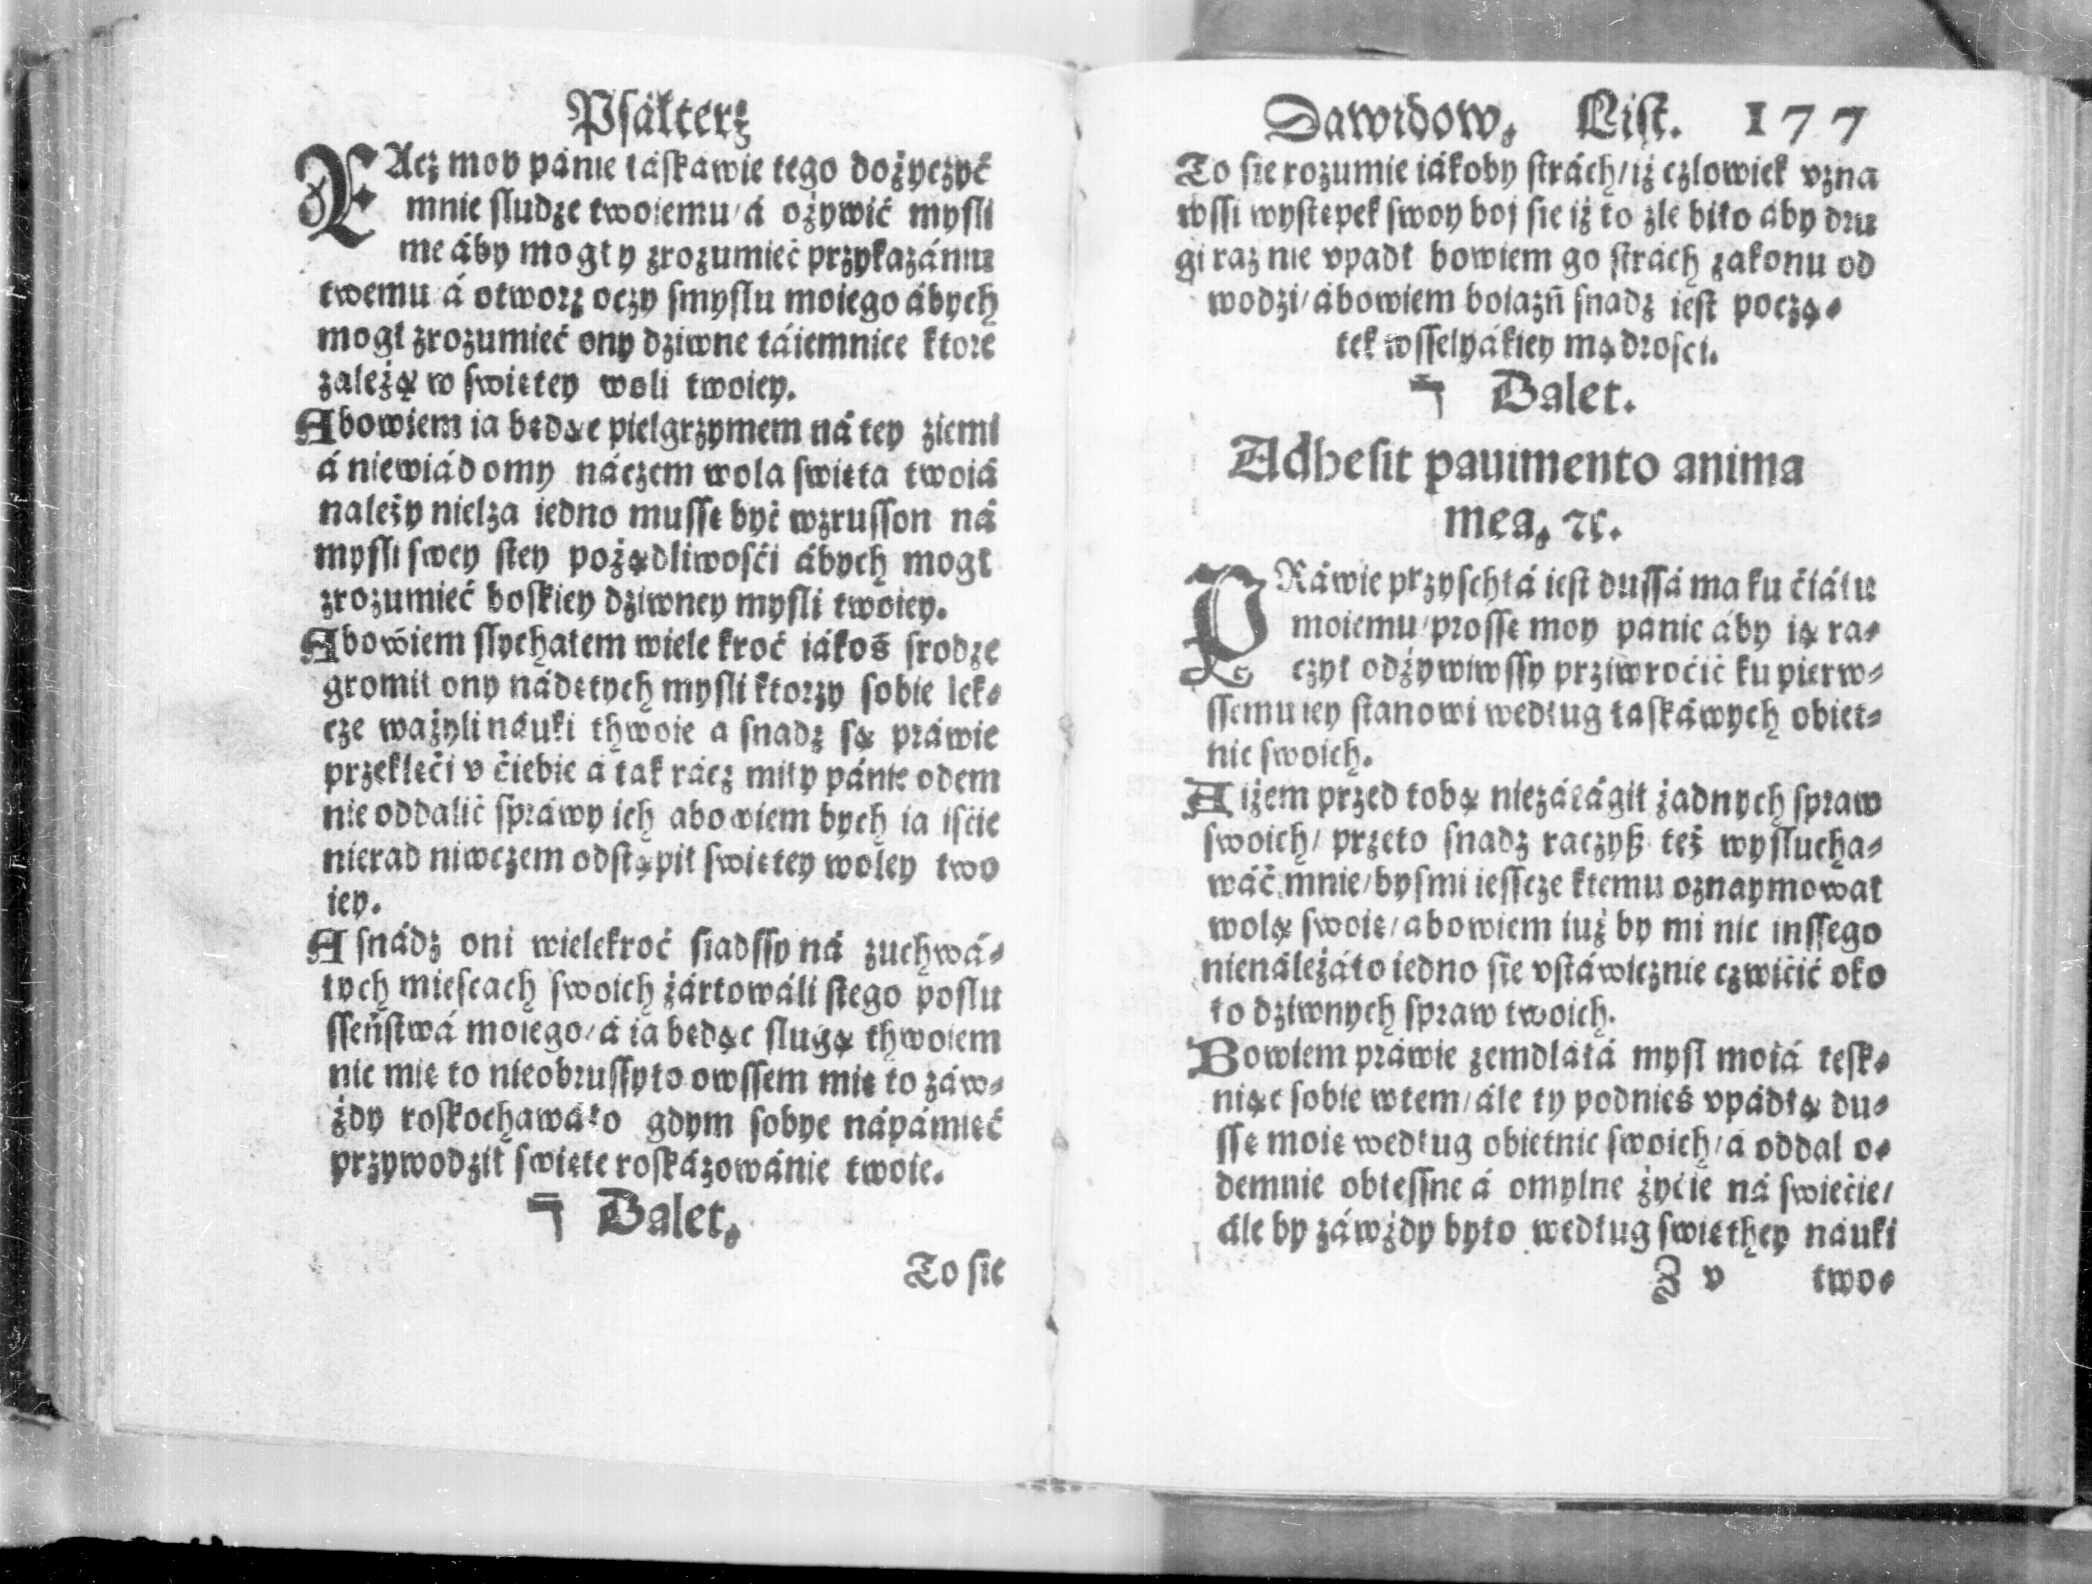 Psałterz
RAcz moy pánie łáskáwie tego dożyczyć
mnie słudze twoiemu/á ożywić mysli
me áby mogły zrozumieć przykazániu
twemu á otworz oczy smysłu moiego ábych
mogł zrozumieć ony dziwne táiemnice ktore
zależą w swiętey woli twoiey.
Abowiem ia będąc pielgrzymem ná tey ziemi
á niewiádomy náczem wola swięta twoiá
należy nielza iedno muszę być wzrusson ná
mysli swey stey pożądliwośći ábych mogł
zrozumieć boskiey dziwney mysli twoiey.
Abowiem słychałem wiele kroć iákoś srodze
gromił ony nádętych mysli ktorzy sobie lek-
cze ważyli náuki thwoie a snadz są práwie
przeklęći v ćiebie á tak rácz miły pánie odem
nie oddalić spráwy ich abowiem bych ia iśćie
nierad niwczem odstąpił swiętey woley two
iey.
A snádz oni wielekroć siadssy ná zuchwá-
łych mieścach swoich żártowáli stego posłu
sseństwá moiego/á ia będąc sługą thwoiem
nic mię to nieobrussyło owssem mię to záw-
żdy roskochawáło gdym sobye nápámięć
przywodził swięte roskázowánie twoie.
ד Dalet.
To się
Dawidow. List. 177
To się rozumie iákoby strách/iż człowiek vzna
wssi wystepek swoy boj się iż to źle biło áby dru
gi raz nie vpadł bowiem go strách zakonu od
wodzi/ábowiem boiazń snadz iest począ-
tek wsselyákiey mądrosci.
ד Dalet.
Adhesit pauimento anima
mea. ⁊c.
PRáwie przyschłá iest dussá ma ku ćiáłu
moiemu/prossę moy panie áby ią ra-
czył odżywiwssy prziwroćić ku pierw-
ssemu iey stanowi według łaskáwych obiet-
nic swoich.
A iżem przed tobą niezáłágił żadnych spraw
swoich/ przeto snadz raczyß też wysłucha-
wáć mnie/bysmi iesscze ktemu oznaymował
wolą swoię/abowiem iuż by mi nic inssego
nienáleżáło iedno się vstáwicznie czwićić oko
ło dziwnych spraw twoich.
Bowiem práwie zemdláłá mysl moiá tesk-
niąc sobie wtem/ále ty podnieś vpádłą du-
ssę moię według obietnic swoich/á oddal o-
demnie obłessne á omylne życie ná swiećie/
ále by záwżdy było według swięthey náuki
Z v two-